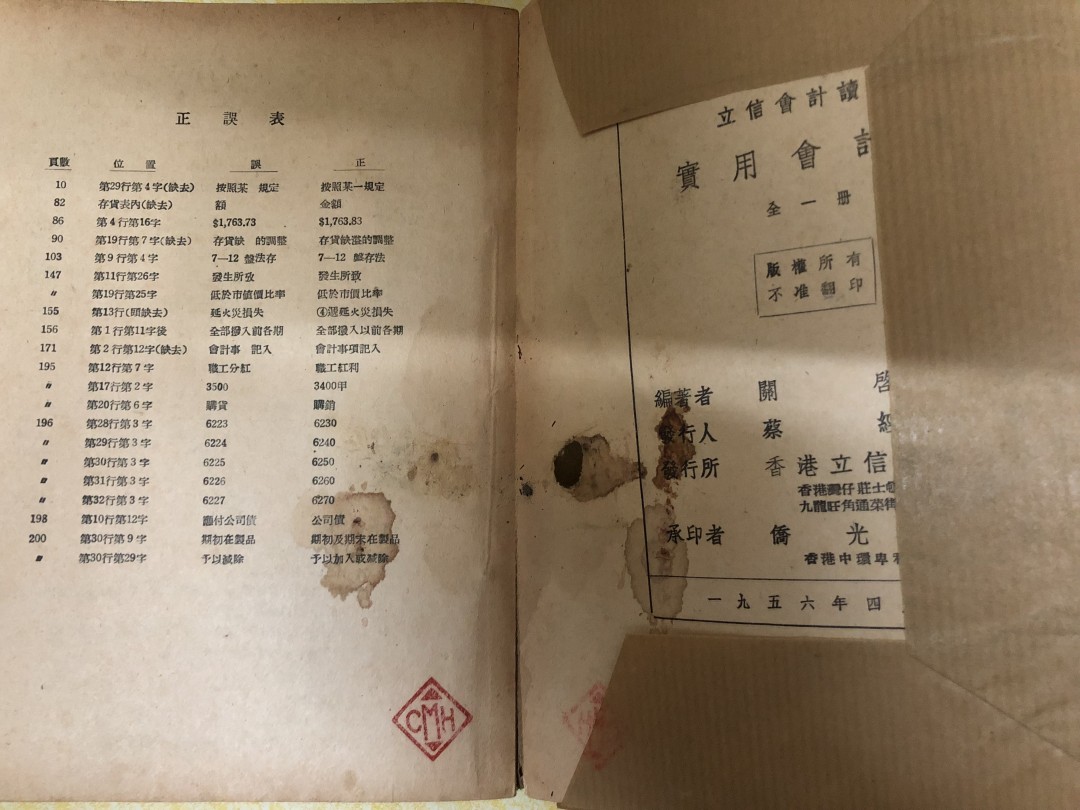 正 誤 表
頁數 位置 誤 正
10 第29行第4字(缺去) 按照某 規定 按照某一規定
82 存貨表內(缺去) 額 金額
86 第4行第16字 $1,763.73 $1,763.83
90 第19行第7字(缺去) 存貨缺 的調整 存貨缺溢的調整
103 第9行第4字 7—12 盤法存 7—12 盤存法
147 第11行第26字 發生所致 發生所致
〃 第19行第25字 低於市値價比率 低於市價比率
155 第13行(頭缺去) 延火災損失 ④遲延火災損失
156 第1行第11字後 全部撥入前各期 全部撥入以前各期
171 第2行第12字(缺去) 會計事 記入 會計事項記入
195 第12行第7字 職工分紅 職工紅利
〃 第17行第2字 3500 3400甲
〃 第20行第6字 購貨 購銷
196 第28行第3字 6223 6230
〃 第29行第3字 6224 6240
〃 第30行第3字 6225 6250
〃 第31行第3字 6226 6260
〃 第32行第3字 6227 6270
198 第10行第12字 付公司債 公司債
200 第30行第9字 期初在製品 期初及期末在製品
〃 第30行第29字 予以減除 予以加入或減除
CMH
立信會計讀
實用會計
全一冊
版權所有
不准翻印
編著者 關 啓
發行人 蔡 經
發行所 香港立信
香港灣仔莊士
九龍旺角通菜街
承印者 僑光
香港中環
一九五六年四